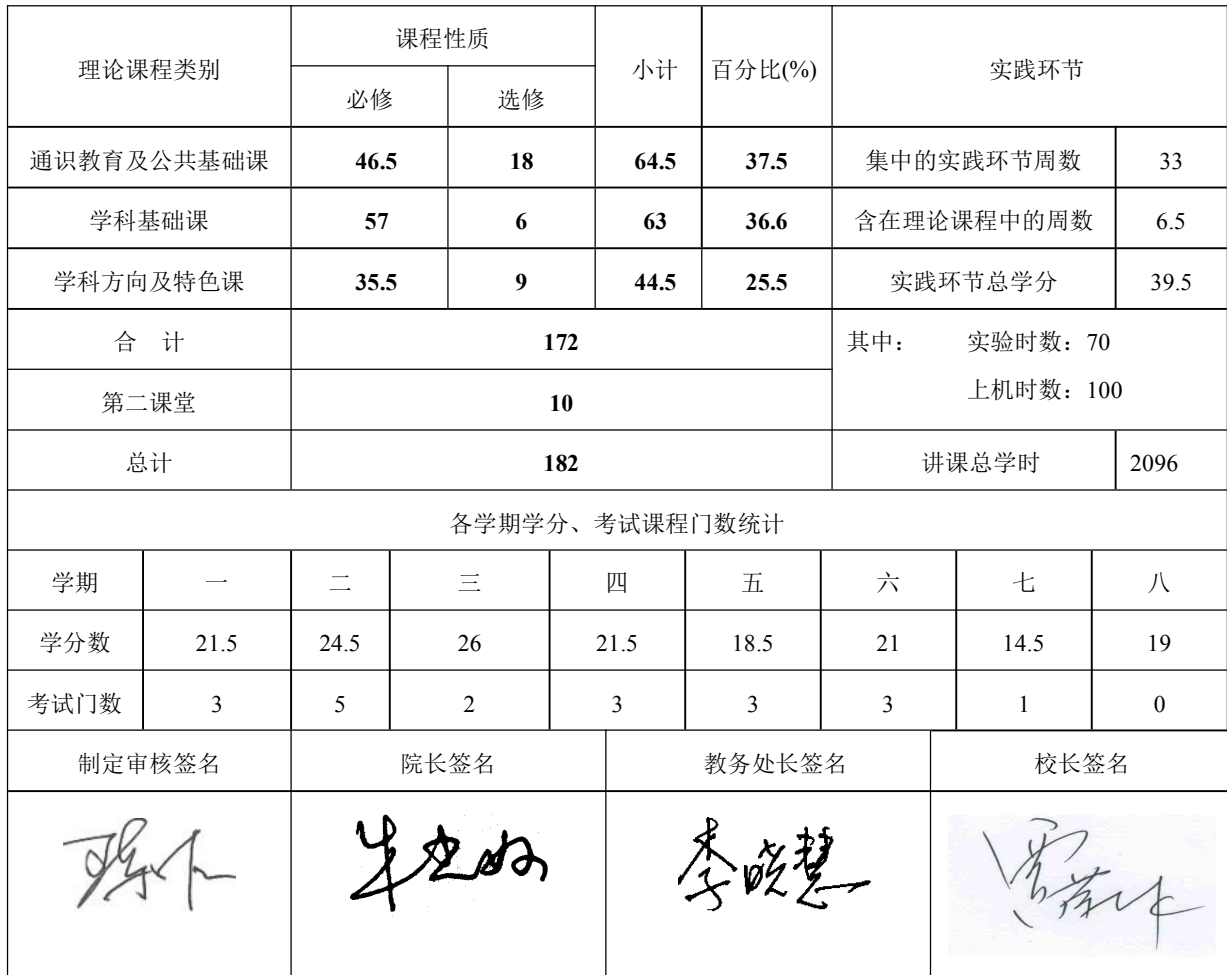 理论课程类别 课程性质 小计 百分比(%) 实践环节
必修 选修
通识教育及公共基础课 46.5 18 64.5 37.5 集中的实践环节周数 33
学科基础课 57 6 63 36.6 含在理论课程中的周数 6.5
学科方向及特色课 35.5 9 44.5 25.5 实践环节总学分 39.5
合 计 172 其中： 实验时数：70
第二课堂 10 上机时数：100
总计 182 讲课总学时 2096
各学期学分、考试课程门数统计
学期 一 二 三 四 五 六 七 八
学分数 21.5 24.5 26 21.5 18.5 21 14.5 19
考试门数 3 5 2 3 3 3 1 0
制定审核签名 院长签名 教务处长签名 校长签名
李晓慧